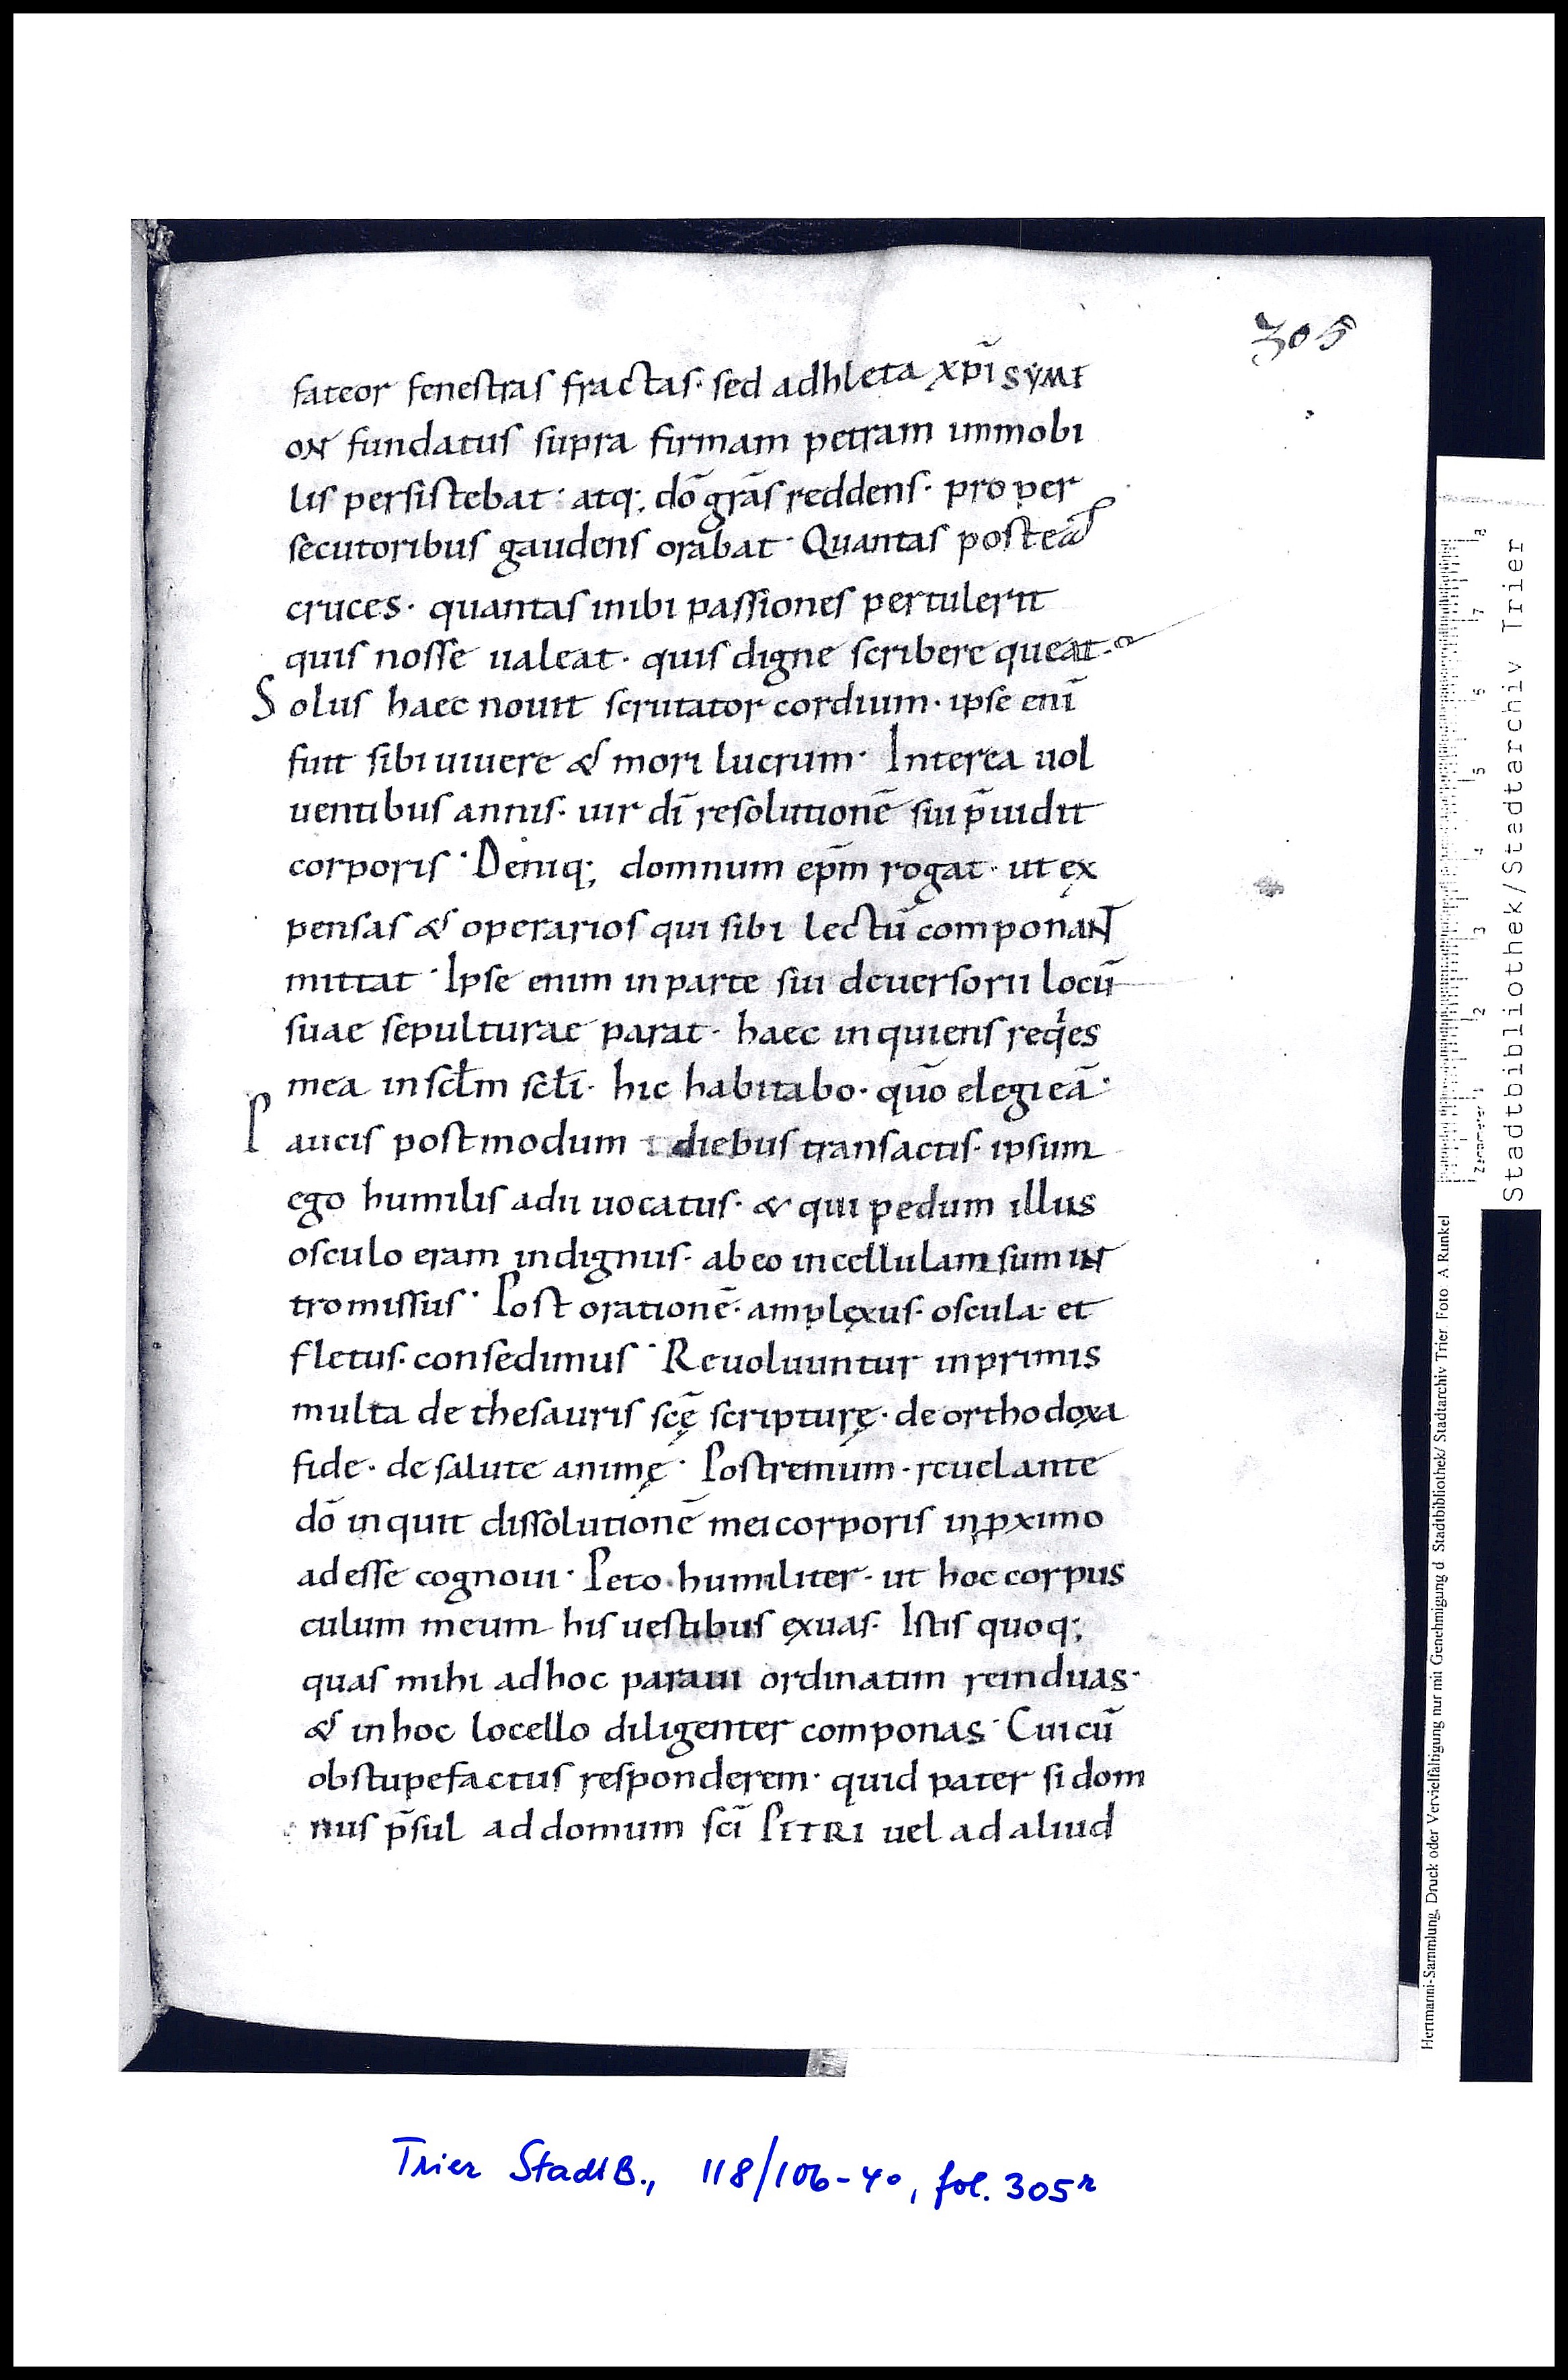 305
fateor fenestras fractas· sed adhleta xp̄i SYMI
ON fundatus supra firmam petram immobi
lis persistebat· atq; dō grās reddens· pro per
secutoribus gaudens orabat· Quantas postea
cruces· quantas inibi passiones pertulerit
quis nosse ualeat· quis digne scribere queat·
Solus haec nouit scrutator cordium· ipse enī
fuit sibi uiuere & mori lucrum· Interea uol
uentibus annis· uir dī resolutionē sui p̄uidit
corporis· Deniq; domnum ep̄m rogat· ut ex
pensas & operarios qui sibi lectū componaNT
mittat· Ipse enim in parte sui deuersorii locū
suae sepulturae parat· haec inquiens reqͥes
mea in scl̄m scl̄i· hic habitabo· qūo elegi eā·
Paucis postmodum diebus transactis· ipsum
ego humilis adii uocatus· & qui pedum illius
osculo eram indignus· ab eo in cellulam sum iN
tromissus· Post orationē· amplexus· oscula· et
fletus· consedimus· Reuoluuntur inprimis
multa de thesauris scę̄ scripturę· de orthodoxa
fide· de salute animę· Postremum· reuelante
dō inquit dissolutionē mei corporis in ꝓximo
adesse cognoui· Peto humiliter· ut hoc corpus
culum meum his uestibus exuas· Istis quoq;
quas mihi ad hoc paraui ordinatim reinduas·
& in hoc locello diligenter componas· Cui cū
obstupefactus responderem· quid pater si dom
nus p̄sul ad domum scī PETRI uel ad aliud
Stadtbibliothek/Stadtarchiv Trier
Hertmanni-Sammlung, Druck oder Vervielfältigung nur mit Genehmigung d Stadtbibliothek/ Stadtarchiv Trier. Foto A Runkel
Trier StadtB., 118/106-4°, fol. 305r